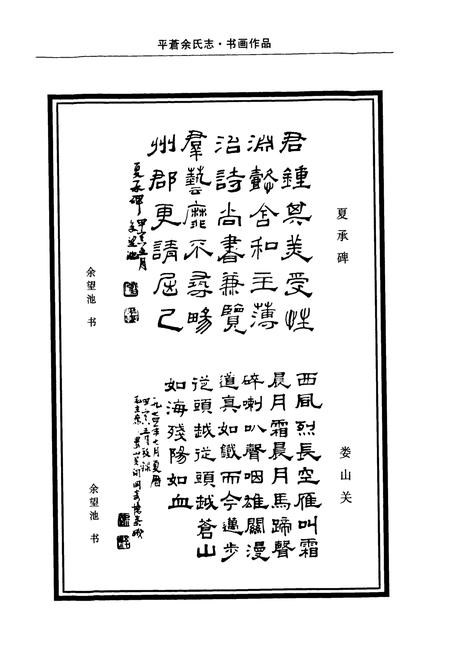 平蒼余氏志·书画作品
夏承碑
君鍾其美受性
淵懿含和主薄
治詩尚書兼覽
羣藝靡不尋畼
州郡更請屈己
夏承碑 甲寅五月
余望池
余望池 书
娄山关
西風烈長空雁叫霜
晨月霜晨月馬蹄聲
碎喇叭聲咽雄關漫
道真如鐵而今邁步
從頭越從頭越蒼山
如海殘陽如血
一九七四年七月夏曆
甲寅五月敬錄
余望池 书